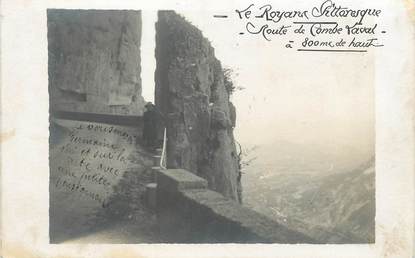 - Le Royans Pittoresque
- Route de Combe Laval -
- à 800 m de haut -
vous
Germaine
et sur la
avec
une petite